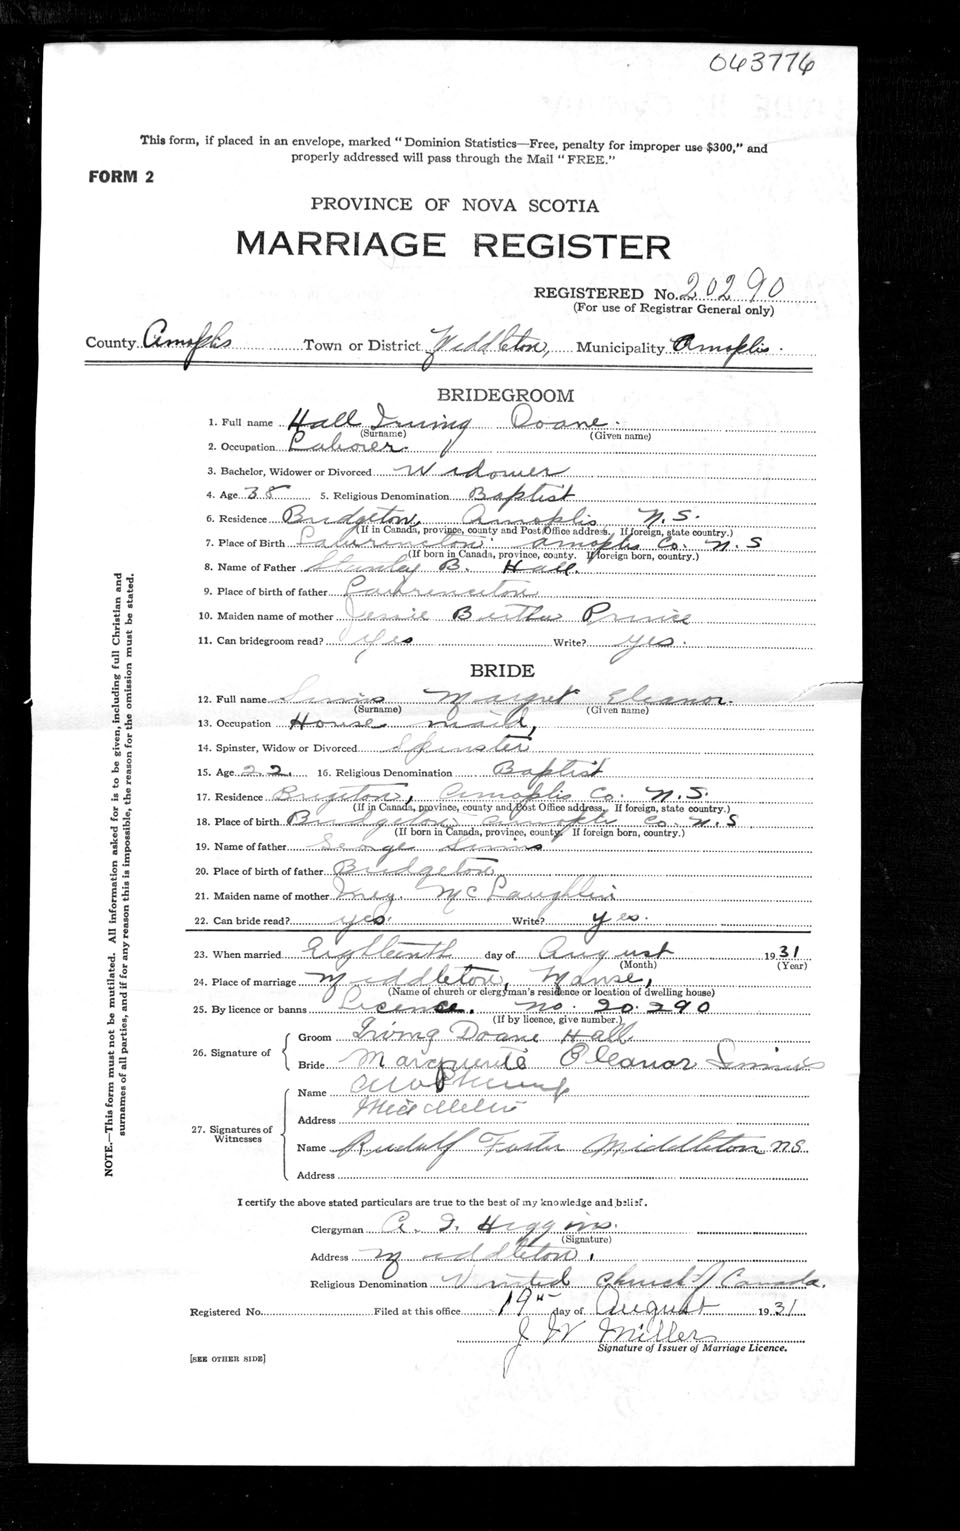 063776
This form, if placed in an envelope, marked "Dominion Statistics—Free, penalty for improper use $300," and
properly addressed will pass through the Mail "FREE."
FORM 2
PROVINCE OF NOVA SCOTIA
MARRIAGE REGISTER
REGISTERED No. 20290
(For use of Registrar General only)
County Annaplis Town or District Middleton, Municipality Annaplis.
BRIDEGROOM
1. Full name Hall Irving Doane.
(Surname) (Given name)
2. Occupation Laborer.
3. Bachelor, Widower or Divorced Widower
4. Age 38 5. Religious Denomination Baptist
6. Residence Bridgeton, Annaplis N.S.
(If in Canada, province, county and Post Office address. If foreign, state country.)
7. Place of Birth Lawrenceton Annaplis Co. N.S
(If born in Canada, province, county. If foreign born, country.)
8. Name of Father Stanley B. Hall.
9. Place of birth of father Lawrenceton
10. Maiden name of mother Jennie Bertha
11. Can bridegroom read? Yes Write? yes.
BRIDE
12. Full name Margret Eleanor.
(Surname) (Given name)
13. Occupation House maid,
14. Spinster, Widow or Divorced Spinster
15. Age 22. 16. Religious Denomination Baptist
17. Residence Brigeton, Annaplis Co. N.S.
(If in Canada, province, county and Post Office address. If foreign, state country.)
18. Place of birth Bridgeton Annaplis Co. N.S
(If born in Canada, province, county. If foreign born, country.)
19. Name of father George
20. Place of birth of father Bridgeton
21. Maiden name of mother McLaughlin
22. Can bride read? yes. Write? yes.
23. When married Eighteenth day of August 1931
(Month) (Year)
24. Place of marriage Middleton, Manse,
(Name of church or clergyman's residence or location of dwelling house)
25. By licence or banns Licence. No. 20.290
(If by licence, give number.)
26. Signature of
Groom Irving Doane Hall
Bride Marguerite Eleanor
27. Signatures of Witnesses
Name
Address Middleton
Name Rudolf Foster Middleton N.S.
Address
I certify the above stated particulars are true to the best of my knowledge and belief.
Clergyman Higgins.
(Signature)
Address Middleton.
Religious Denomination United Church of Canada.
Registered No. Filed at this office 19th day of August 1931
J W Miller
Signature of Issuer of Marriage Licence.
[SEE OTHER SIDE]
NOTE.—This form must not be mutilated. All information asked for is to be given, including full Christian and
surnames of all parties, and if for any reason this is impossible, the reason for the omission must be stated.